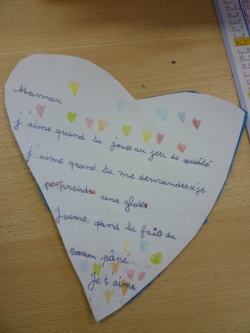 Maman
j'aime quand tu joues au jeu de société
j'aime quand tu me demandes si je
peprendre une glace
J'aime quand tu fais du
pané
Je t'aime